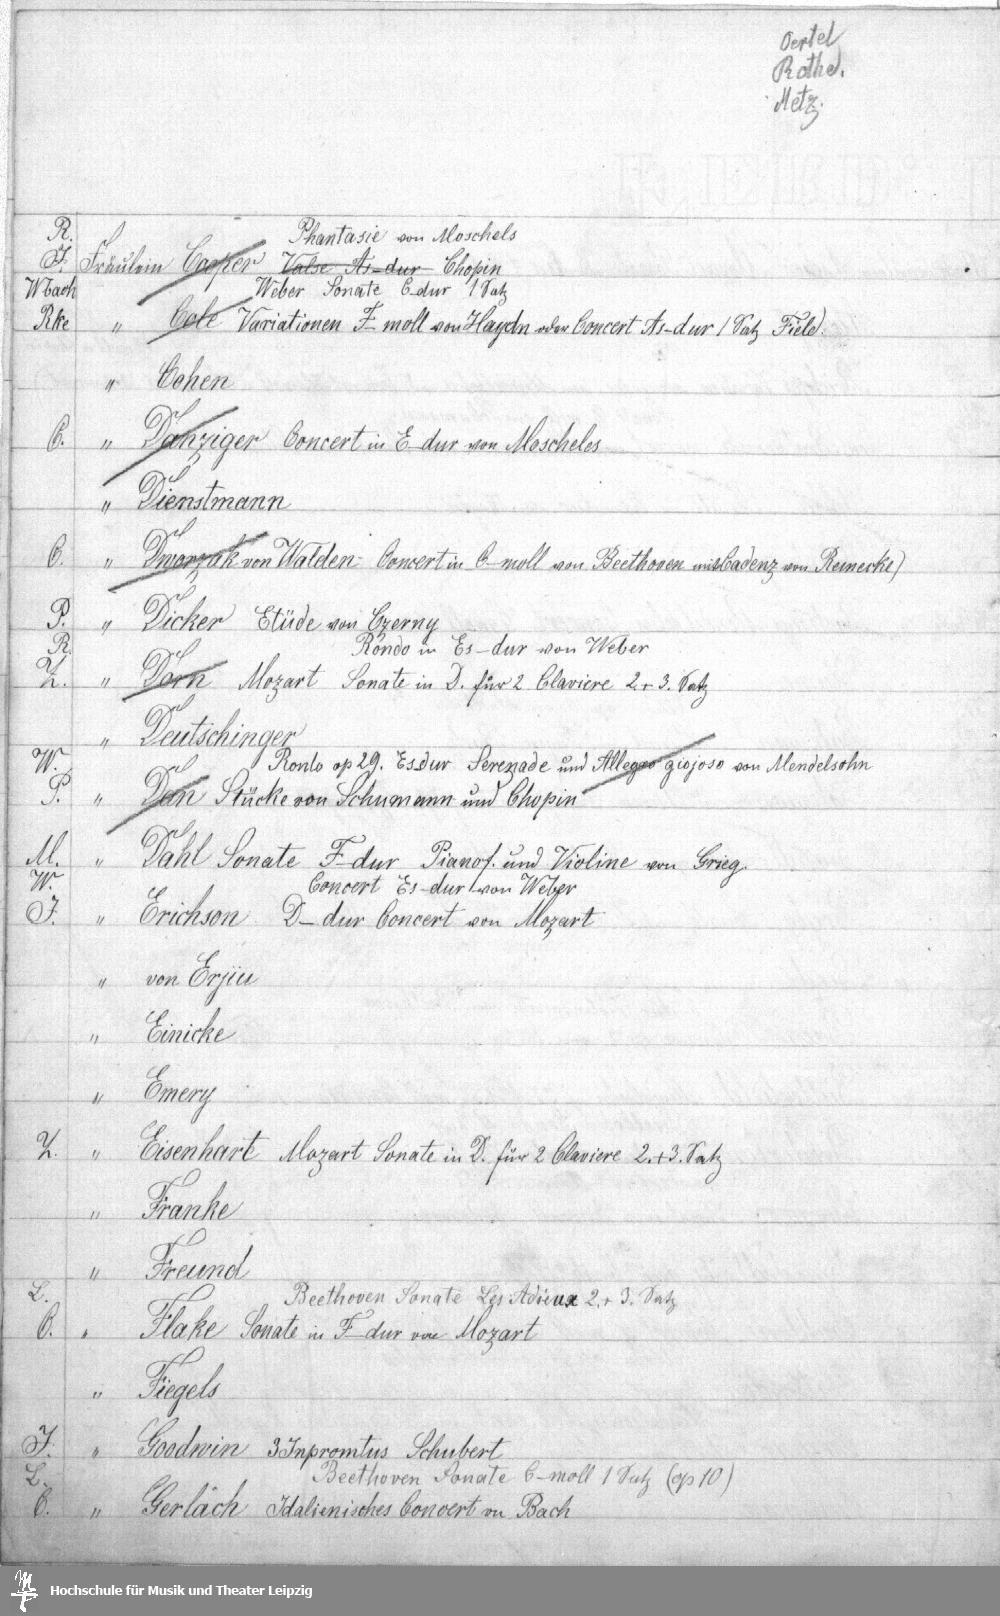 Oertel
Rothe.
Metz.
R. Phantasie von Moschels
J. Fräulein Cooper Valse As-dur Chopin
Wbach Weber Sonate C dur 1 Satz
Rke " Cole Variationen F moll von Haydn oder Concert As-dur 1 Satz Field.
" Cohen
C. " Danziger Concert in E dur von Moscheles
" Dienstmann
C. " Dworzak von Walden Concert in C moll von Beethoven mit Cadenz von Reinecke)
P. " Dicker Etüde von Czerny
R. Rondo in Es-dur von Weber
Z. " Dorn Mozart Sonate in D. für 2 Claviere 2.+ 3. Satz
" Deutschinger
W. Rondo op 29. Es dur Serenade und Allegro giojoso von Mendelsohn
P. " Don Stücke von Schumann und Chopin
M. " Dahl Sonate F-dur Pianof. und Violine von Grieg.
W. Concert Es-dur von Weber
J. " Erichson D-dur Concert von Mozart
" von Erjiu
" Einicke
" Emery
Z. " Eisenhart Mozart Sonate in D. für 2 Claviere 2.+3. Satz
" Franke
" Freund
L. Beethoven Sonate Les Adieux 2.+ 3. Satz
C. " Flake Sonate in F dur von Mozart
" Fiegels
J. " Goodwin 3 Inpromtus Schubert
L. Beethoven Sonate C-moll 1 Satz (op 10)
C. " Gerlach Idalienisches Concert vn Bach
Hochschule für Musik und Theater Leipzig